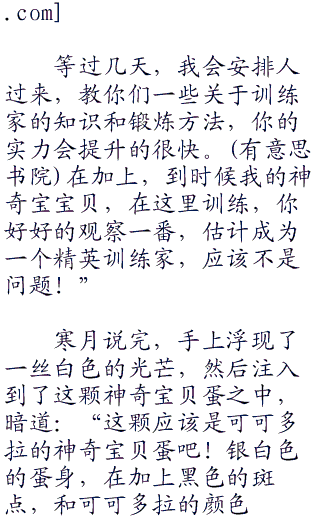 .com]
等过几天，我会安排人
过来，教你们一些关于训练
家的知识和锻炼方法，你的
实力会提升的很快。(有意思
书院)在加上，到时候我的神
奇宝宝贝，在这里训练，你
好好的观察一番，估计成为
一个精英训练家，应该不是
问题！”
寒月说完，手上浮现了
一丝白色的光芒，然后注入
到了这颗神奇宝贝蛋之中，
暗道：“这颗应该是可可多
拉的神奇宝贝蛋吧！银白色
的蛋身，在加上黑色的斑
点，和可可多拉的颜色